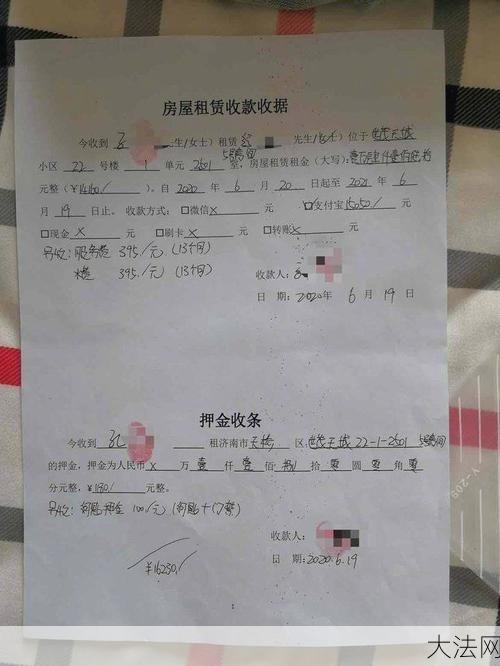 房屋租赁收款收据
今收到 孔 先生/女士）租赁 先生/女士）位于 世茂天城
小区 22 号楼 1 单元 2601 5号房间 室，房屋租赁租金（大写）：壹万肆仟壹佰
元整（¥14160/ ）。自 2020 年 6 月 20 日起至 2021 年 6
月 19 日止。 收款方式：□微信 x 元 □支付宝 15050/ 元
□现金 x 元 □刷卡 x 元 □转账 x 元
另收：服务费 395/元（13个月）
395/元（13个月）
收款人：
日 期：2020年 6 月 19 日
押金收条
今收到 孔 租济南市 天桥 区 世茂天城 22-1-2601 5号房间
的押金，押金为人民币 x 万 壹 仟 壹 佰 捌 拾 零 圆 零 角 零
分元整，¥1180/ 元整。
另收：钥匙押金 100/元（钥匙+门禁）
收款人：
日 期：2020.6.19
¥16230/
Y-209
大法网